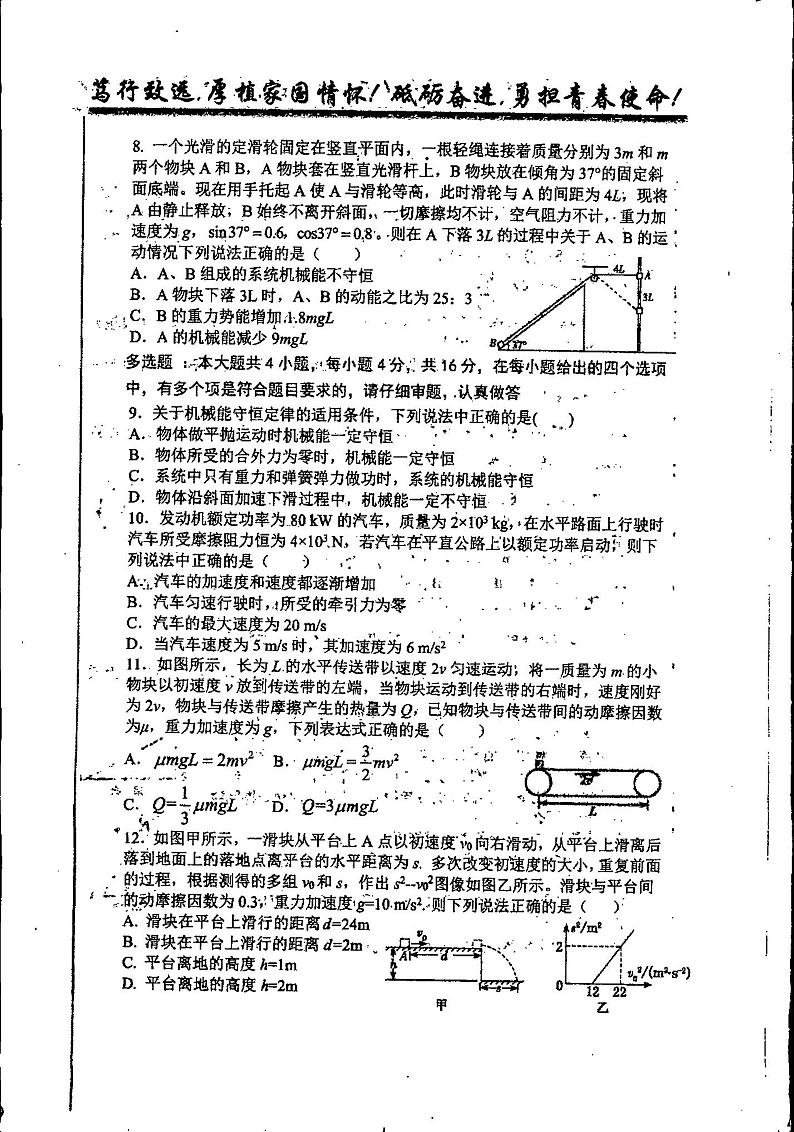 笃行致远,厚植家国情怀!砥砺奋进,勇担青春使命!
8. 一个光滑的定滑轮固定在竖直平面内,一根轻绳连接着质量分别为3m和m
两个物块A和B,A物块套在竖直光滑杆上,B物块放在倾角为37°的固定斜
面底端。现在用手托起A使A与滑轮等高,此时滑轮与A的间距为4L;现将
A由静止释放;B始终不离开斜面,一切摩擦均不计,空气阻力不计,重力加
速度为g,sin37°=0.6,cos37°=0.8。则在A下落3L的过程中关于A、B的运
动情况下列说法正确的是( )
A. A、B组成的系统机械能不守恒
B. A物块下落3L时,A、B的动能之比为25:3
C. B的重力势能增加1.8mgL
D. A的机械能减少9mgL
4L
A
3L
B
37°
多选题:本大题共4小题,每小题4分,共16分,在每小题给出的四个选项
中,有多个项是符合题目要求的,请仔细审题,认真做答
9. 关于机械能守恒定律的适用条件,下列说法中正确的是( )
A. 物体做平抛运动时机械能一定守恒
B. 物体所受的合外力为零时,机械能一定守恒
C. 系统中只有重力和弹簧弹力做功时,系统的机械能守恒
D. 物体沿斜面加速下滑过程中,机械能一定不守恒
10. 发动机额定功率为80 kW的汽车,质量为2×10³ kg,在水平路面上行驶时
汽车所受摩擦阻力恒为4×10³ N,若汽车在平直公路上以额定功率启动,则下
列说法中正确的是( )
A. 汽车的加速度和速度都逐渐增加
B. 汽车匀速行驶时,所受的牵引力为零
C. 汽车的最大速度为20 m/s
D. 当汽车速度为5 m/s时,其加速度为6 m/s²
11. 如图所示,长为L的水平传送带以速度2v匀速运动;将一质量为m的小
物块以初速度v放到传送带的左端,当物块运动到传送带的右端时,速度刚好
为2v,物块与传送带摩擦产生的热量为Q,已知物块与传送带间的动摩擦因数
为μ,重力加速度为g,下列表达式正确的是( )
A. μmgL=2mv² B. μmgL=3/2mv²
C. Q=1/3μmgL D. Q=3μmgL
m
2v
L
12. 如图甲所示,一滑块从平台上A点以初速度v₀向右滑动,从平台上滑离后
落到地面上的落地点离平台的水平距离为s. 多次改变初速度的大小,重复前面
的过程,根据测得的多组v₀和s,作出s²--v₀²图像如图乙所示。滑块与平台间
的动摩擦因数为0.3,重力加速度g=10 m/s².则下列说法正确的是( )
A. 滑块在平台上滑行的距离d=24m
B. 滑块在平台上滑行的距离d=2m
C. 平台离地的高度h=1m
D. 平台离地的高度h=2m
v₀
A
d
h
s
甲
s²/m²
2
0
12 22
v₀²/(m²·s⁻²)
乙